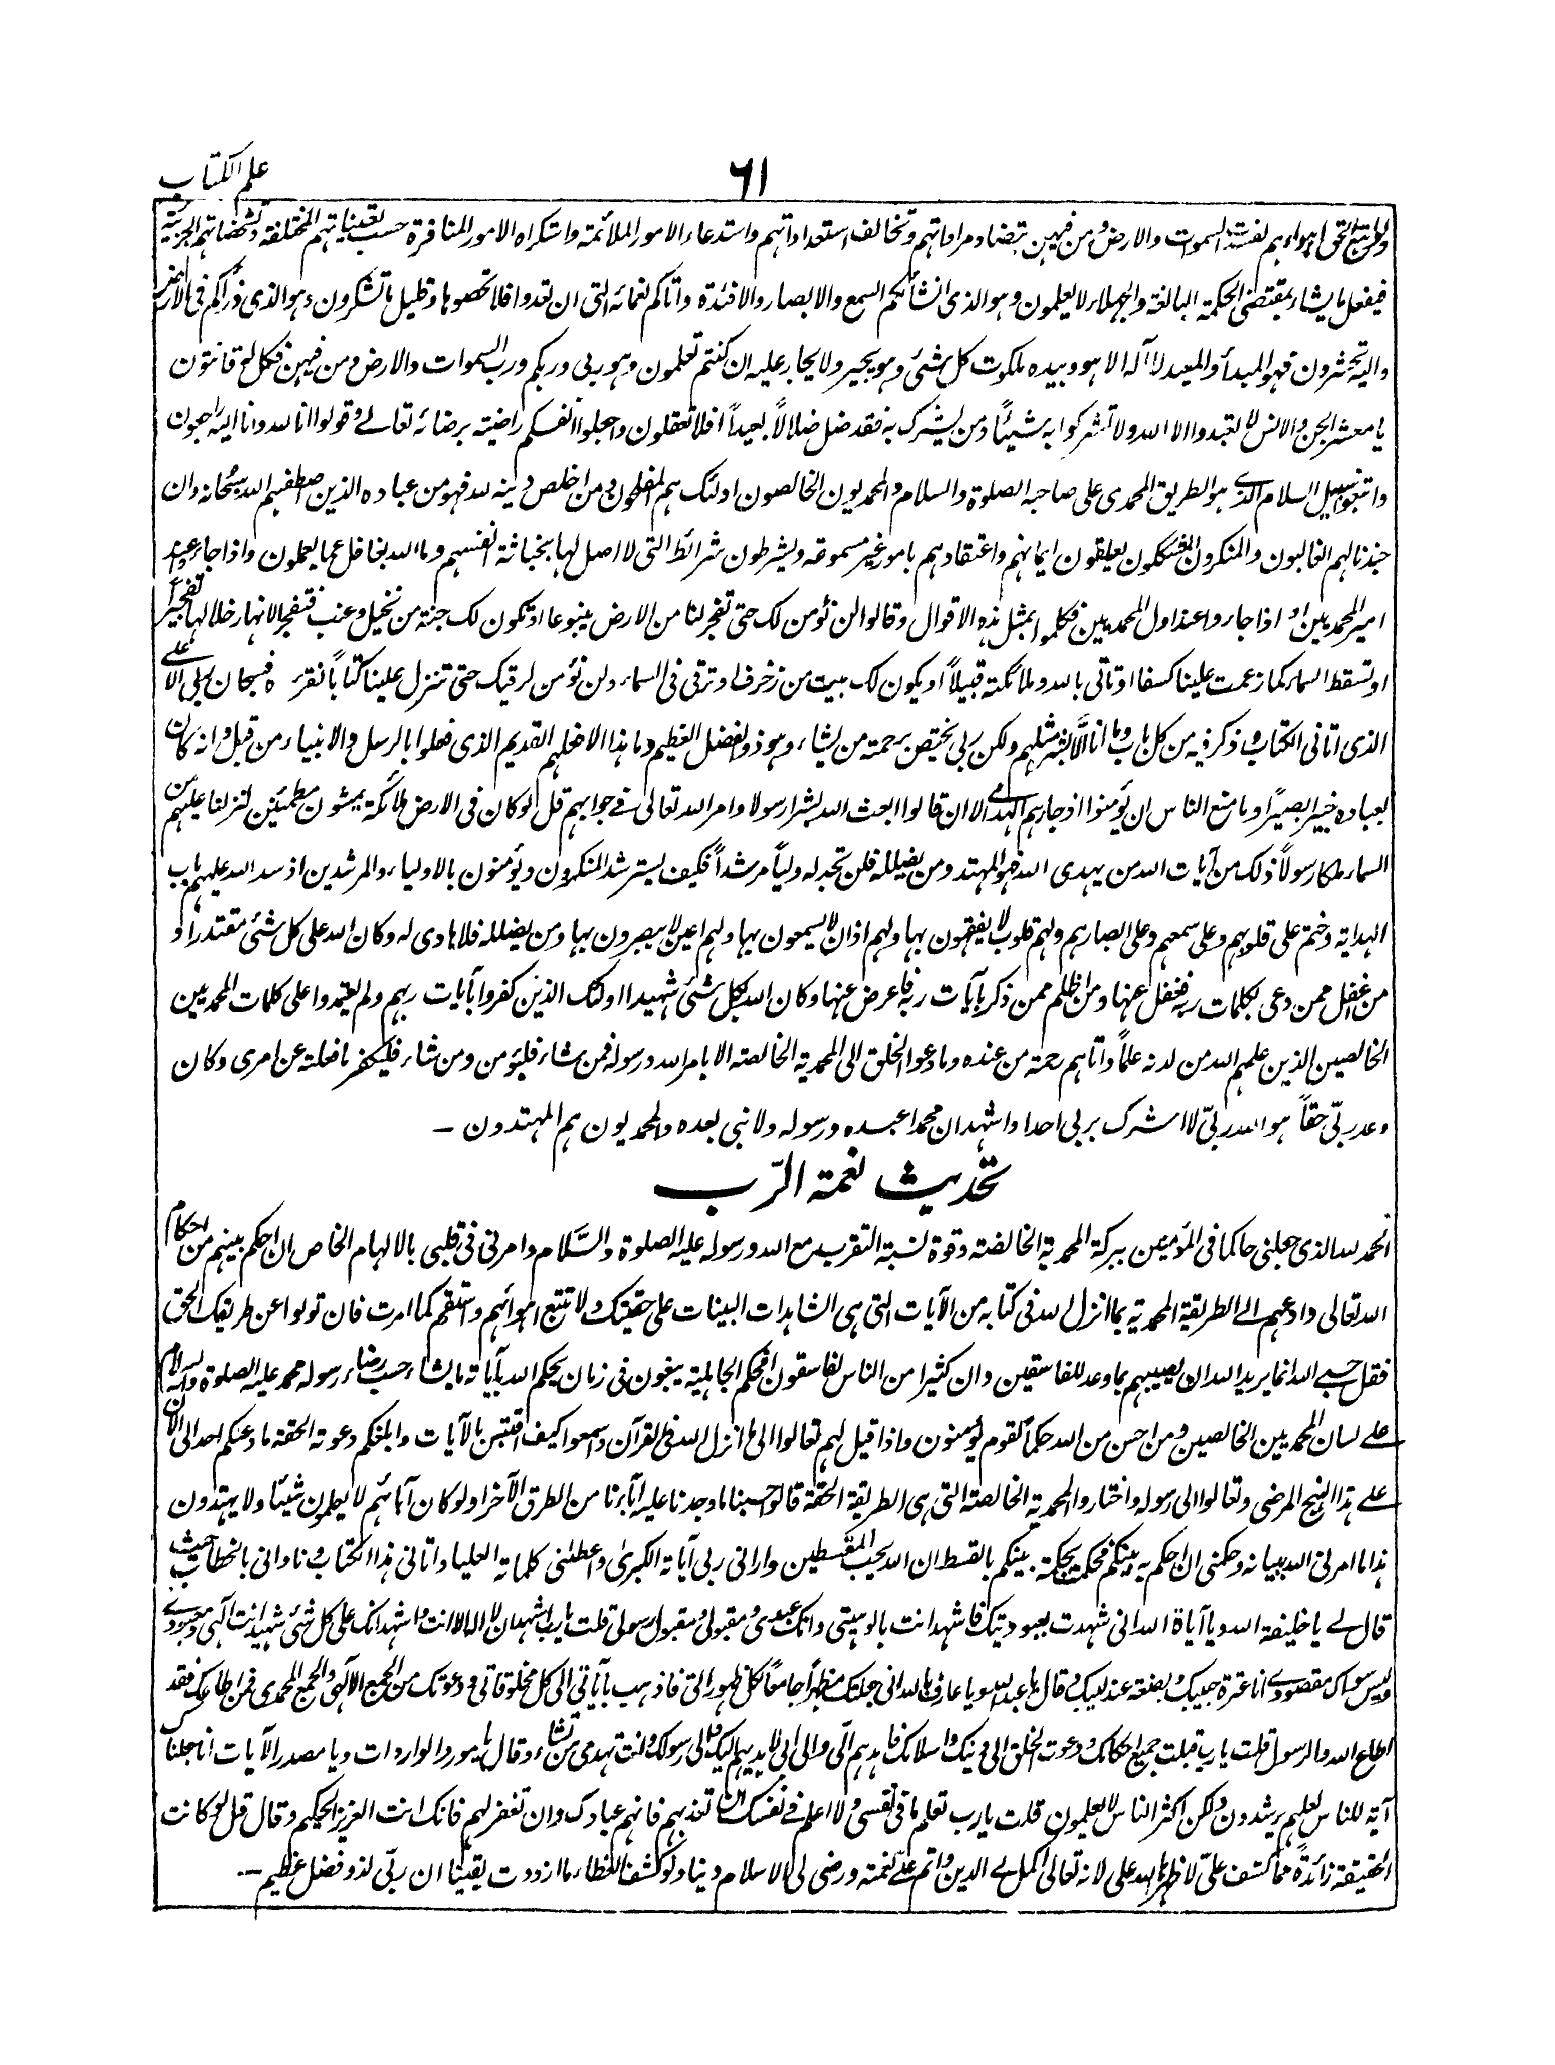 علم الکتاب
٦١
ولو اتبع الحق اہواءہم لفسدت السموات والارض ومن فیہن بتضاد مراداتہم وتخالف استعداداتہم واستدعاء الامور الملائمۃ واستکراہ الامور المنافرۃ حسب تعیناتہم المختلفۃ وتشخصاتہم الجزئیۃ
فیفعل ما یشاء بمقتضی الحکمۃ البالغۃ والجہلاء لا یعلمون وہو الذی انشألکم السمع والابصار والافئدۃ واتاکم نعمائہ التی ان تعدوا فلا تحصوہا وقلیل ما تشکرون وہو الذی ذرأکم فی الارض
والیہ تحشرون فہو المبدأ والمعید لا الہ الا ہو وبیدہ ملکوت کل شئی وہو یجیر ولا یجار علیہ ان کنتم تعلمون وہو ربی وربکم ورب السموات والارض ومن فیہن فکل لہ قانتون
یا معشر الجن والانس لا تعبدوا الا اللہ ولا تشرکوا بہ شیئاً ومن یشرک بہ فقد ضل ضلالاً بعیداً افلا تعقلون واجعلوا انفسکم راضیۃ برضائہ تعالے وقولوا انا للہ وانا الیہ راجعون
واتبعوا سبیل السلام الذے ہو الطریق المحمدی علی صاحبہ الصلوۃ والسلام والمحمدیون الخالصون اولئک ہم المفلحون ومن اخلص دینہ للہ فہو من عبادہ الذین اصطفیہم اللہ سبحانہ وان
جندنا لہم الغالبون والمنکرون المشککون یعلقون ایمانہم واعتقادہم بامور غیر مسموعۃ ویشرطون شرائط التی لا اصل لہا بخباثۃ انفسہم وما اللہ بغافل عما یعملون واذا جاءوا عند
امیر المحمدیین او اذا جاءوا عند اول المحمدیین فکلموا بمثل ہذہ الاقوال وقالوا لن نؤمن لک حتی تفجر لنا من الارض ینبوعا او تکون لک جنۃ من نخیل وعنب فتفجر الانہار خلالہا تفجیرا
او تسقط السماء کما زعمت علینا کسفا او تاتی باللہ والملائکۃ قبیلاً او یکون لک بیت من زخرف او ترقی فی السماء ولن نؤمن لرقیک حتی تنزل علینا کتاباً نقرءہ فسبحان ربی الاعلے
الذی اتانی الکتاب وذکر فیہ من کل باب وما انا الا بشر مثلہم ولکن ربی یختص برحمتہ من یشاء وہو ذو الفضل العظیم وما ہذا الا فعلہم القدیم الذی فعلوا بالرسل والانبیاء من قبل وانہ کان
بعبادہ خبیرا بصیراً وما منع الناس ان یؤمنوا اذ جاءہم الہدے الا ان قالوا ابعث اللہ بشرا رسولا وامر اللہ تعالی فے جوابہم قل لو کان فی الارض ملائکۃ یمشون مطمئنین لنزلنا علیہم من
السماء ملکا رسولاً ذلک من آیات اللہ من یہدی اللہ فہو المہتد ومن یضللہ فلن تجد لہ ولیاً مرشداً فکیف یسترشد المنکرون ویؤمنون بالاولیاء والمرشدین اذ سد اللہ علیہم باب
الہدایۃ وختم علی قلوبہم وعلی سمعہم وعلی ابصارہم ولہم قلوب لا یفقہون بہا ولہم اذان لا یسمعون بہا ولہم اعین لا یبصرون بہا ومن یضللہ فلا ہادی لہ وکان اللہ علی کل شئی مقتدرا و
من غفل ممن دعی بکلمات ربہ فغفل عنہا ومن اظلم ممن ذکر بآیات ربہ فاعرض عنہا وکان اللہ بکل شئی شہیدا اولئک الذین کفروا بآیات ربہم ولم یعتمدوا علی کلمات المحمدیین
الخالصین الذین علمہم اللہ من لدنہ علماً واتاہم رحمۃ من عندہ وما دعوا الخلق الی المحمدیۃ الخالصۃ الا بامر اللہ ورسولہ فمن شاء فلیؤمن ومن شاء فلیکفر ما فعلتہ عن امری وکان
وعد ربّی حقاً ہو اللہ ربّی لا اشرک بربی احدا واشہد ان محمدا عبدہ ورسولہ ولا نبی بعدہ والمحمدیون ہم المہتدون ـ
تحدیث نعمۃ الرّب
الحمد للہ الذی جعلنی حاکما فی المؤمنین ببرکۃ المحمدیۃ الخالصۃ وقوۃ نسبۃ التقرب مع اللہ ورسولہ علیہ الصلوۃ والسّلام وامرنی فی قلبی بالالہام الخاص ان احکم بینہم من احکام
اللہ تعالی وادعہم الے الطریقۃ المحمدیۃ بما انزل اللہ فی کتابہ من الآیات التی ہی الشاہدات البینات علی حقیتک ولا تتبع اہوائہم واستقم کما امرت فان تولوا عن طریقک الحق
فقل حسبے اللہ انما یرید اللہ ان یصیبہم بما وعد للفاسقین وان کثیرا من الناس لفاسقون افحکم الجاہلیۃ یبغون فی زمان یحکم اللہ بآیاتہ ما یشاء حسب رضاء رسولہ محمد علیہ الصلوۃ والسلام
علے لسان المحمدیین الخالصین ومن احسن من اللہ حکماً لقوم یؤمنون واذا قیل لہم تعالوا الی ما انزل اللہ فی القرآن واسمعوا کیف اقتبس بالآیات وابلغکم دعوتہ الحقۃ ما دعکم احد الی الآن
علے ہذا النہج المرضی وتعالوا الی رسولہ واختاروا المحمدیۃ الخالصۃ التی ہی الطریقۃ الحقۃ قالوا حسبنا ما وجدنا علیہ آباءنا من الطرق الآخر اولو کان آبائہم لا یعلمون شیئا ولا یہتدون
ہذا ما امرنی اللہ ببیانہ وحکمنی ان احکم بہ بینکم فحکمت بحکمہ بینکم بالقسط ان اللہ یحب المقسطین وارانی ربی آیاتہ الکبریٰ واعطانی کلماتہ العلیا واتانی ہذا الکتاب ونادانی بالخطاب حیث
قال لے یا خلیفۃ اللہ ویا آیۃ اللہ انی شہدت بعبودیتک فاشہد انت بالوہیتی وانک عبدی ومقبولی ومقبول رسولی قلت یا رب اشہد ان لا الہ الا انت واشہد انک علی کل شئ شہید انت الٰہی ومعبودے
ولیس سواک مقصودے انا عترۃ حبیبک وبضعۃ عندلیبک وقال یا عبد اللہ ویا عارف باللہ انی جعلتک مظہراً جامعاً لکل ظہوراتی فاذہب بآیاتی الی کل مخلوقاتی ودعوتک من الجمع الالٰہی والجمع المحمدی فمن اطاعک فقد
اطاع اللہ والرسول قلت یا رب قبلت جمیع احکامک ودعوت الخلق الی دینک واسلامک فاہدہم الّی والی ابی لا یدیہم الیک والی رسولک وانت تہدی من تشاء وقال یا مورد الواردات ویا مصدر الآیات انا جعلناک
آیۃ للناس لعلہم یرشدون ولکن اکثر الناس لا یعلمون قلت یا رب تعلم ما فی نفسی ولا اعلم ما فے نفسک ان تعذبہم فانہم عبادک وان تغفر لہم فانک انت العزیز الحکیم وقال قل لو کانت
الحقیقۃ زائدۃ مما کشف علیّ لاظہرہا اللہ علی لانہ تعالی اکمل لے الدین واتم علّے نعمتہ ورضی لی الاسلام دینا ولو کشف الغطاء ما ازددت یقیناً ان ربّی لذو فضل عظیم ـ